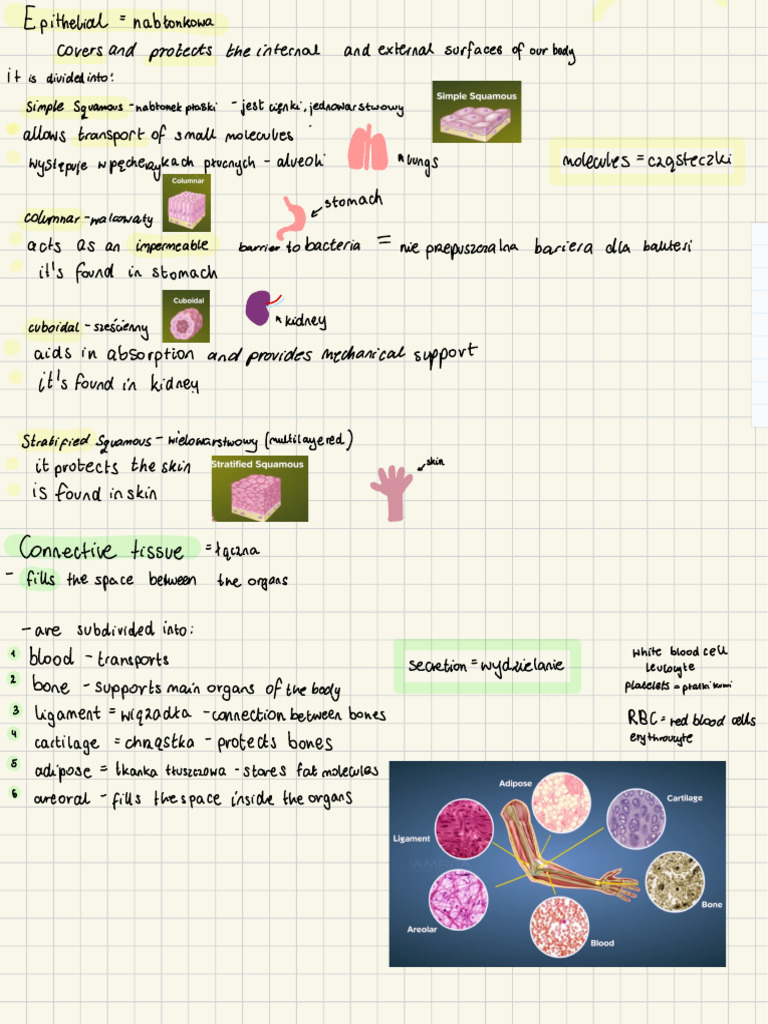 Epithelial = nabłonkowa
covers and protects the internal and external surfaces of our body
it is divided into:
Simple Squamous - nabłonek płaski - jest cięnki, jednowarstwowy
Simple Squamous
allows transport of small molecules
występuje w pęcherzykach płucnych - alveoli
lungs
molecules = cząsteczki
Columnar
stomach
columnar - walcowaty
acts as an impermeable barrier to bacteria = nie przepuszczalna bariera dla bakterii
it's found in stomach
Cuboidal
kidney
cuboidal - sześcienny
aids in absorption and provides mechanical support
it's found in kidney
Stratified Squamous - wielowarstwowy (multilayered)
it protects the skin
Stratified Squamous
skin
is found in skin
Connective tissue = łączna
- fills the space between the organs
- are subdivided into:
1 blood - transports
2 bone - supports main organs of the body
3 ligament = wiązadła - connection between bones
4 cartilage = chrząstka - protects bones
5 adipose = tkanka tłuszczowa - stores fat molecules
6 areoral - fills the space inside the organs
secretion = wydzielanie
white blood cell
leucocyte
platelets = płatki krwi
RBC = red blood cells
erythrocyte
Adipose
Cartilage
Ligament
Bone
Areolar
Blood